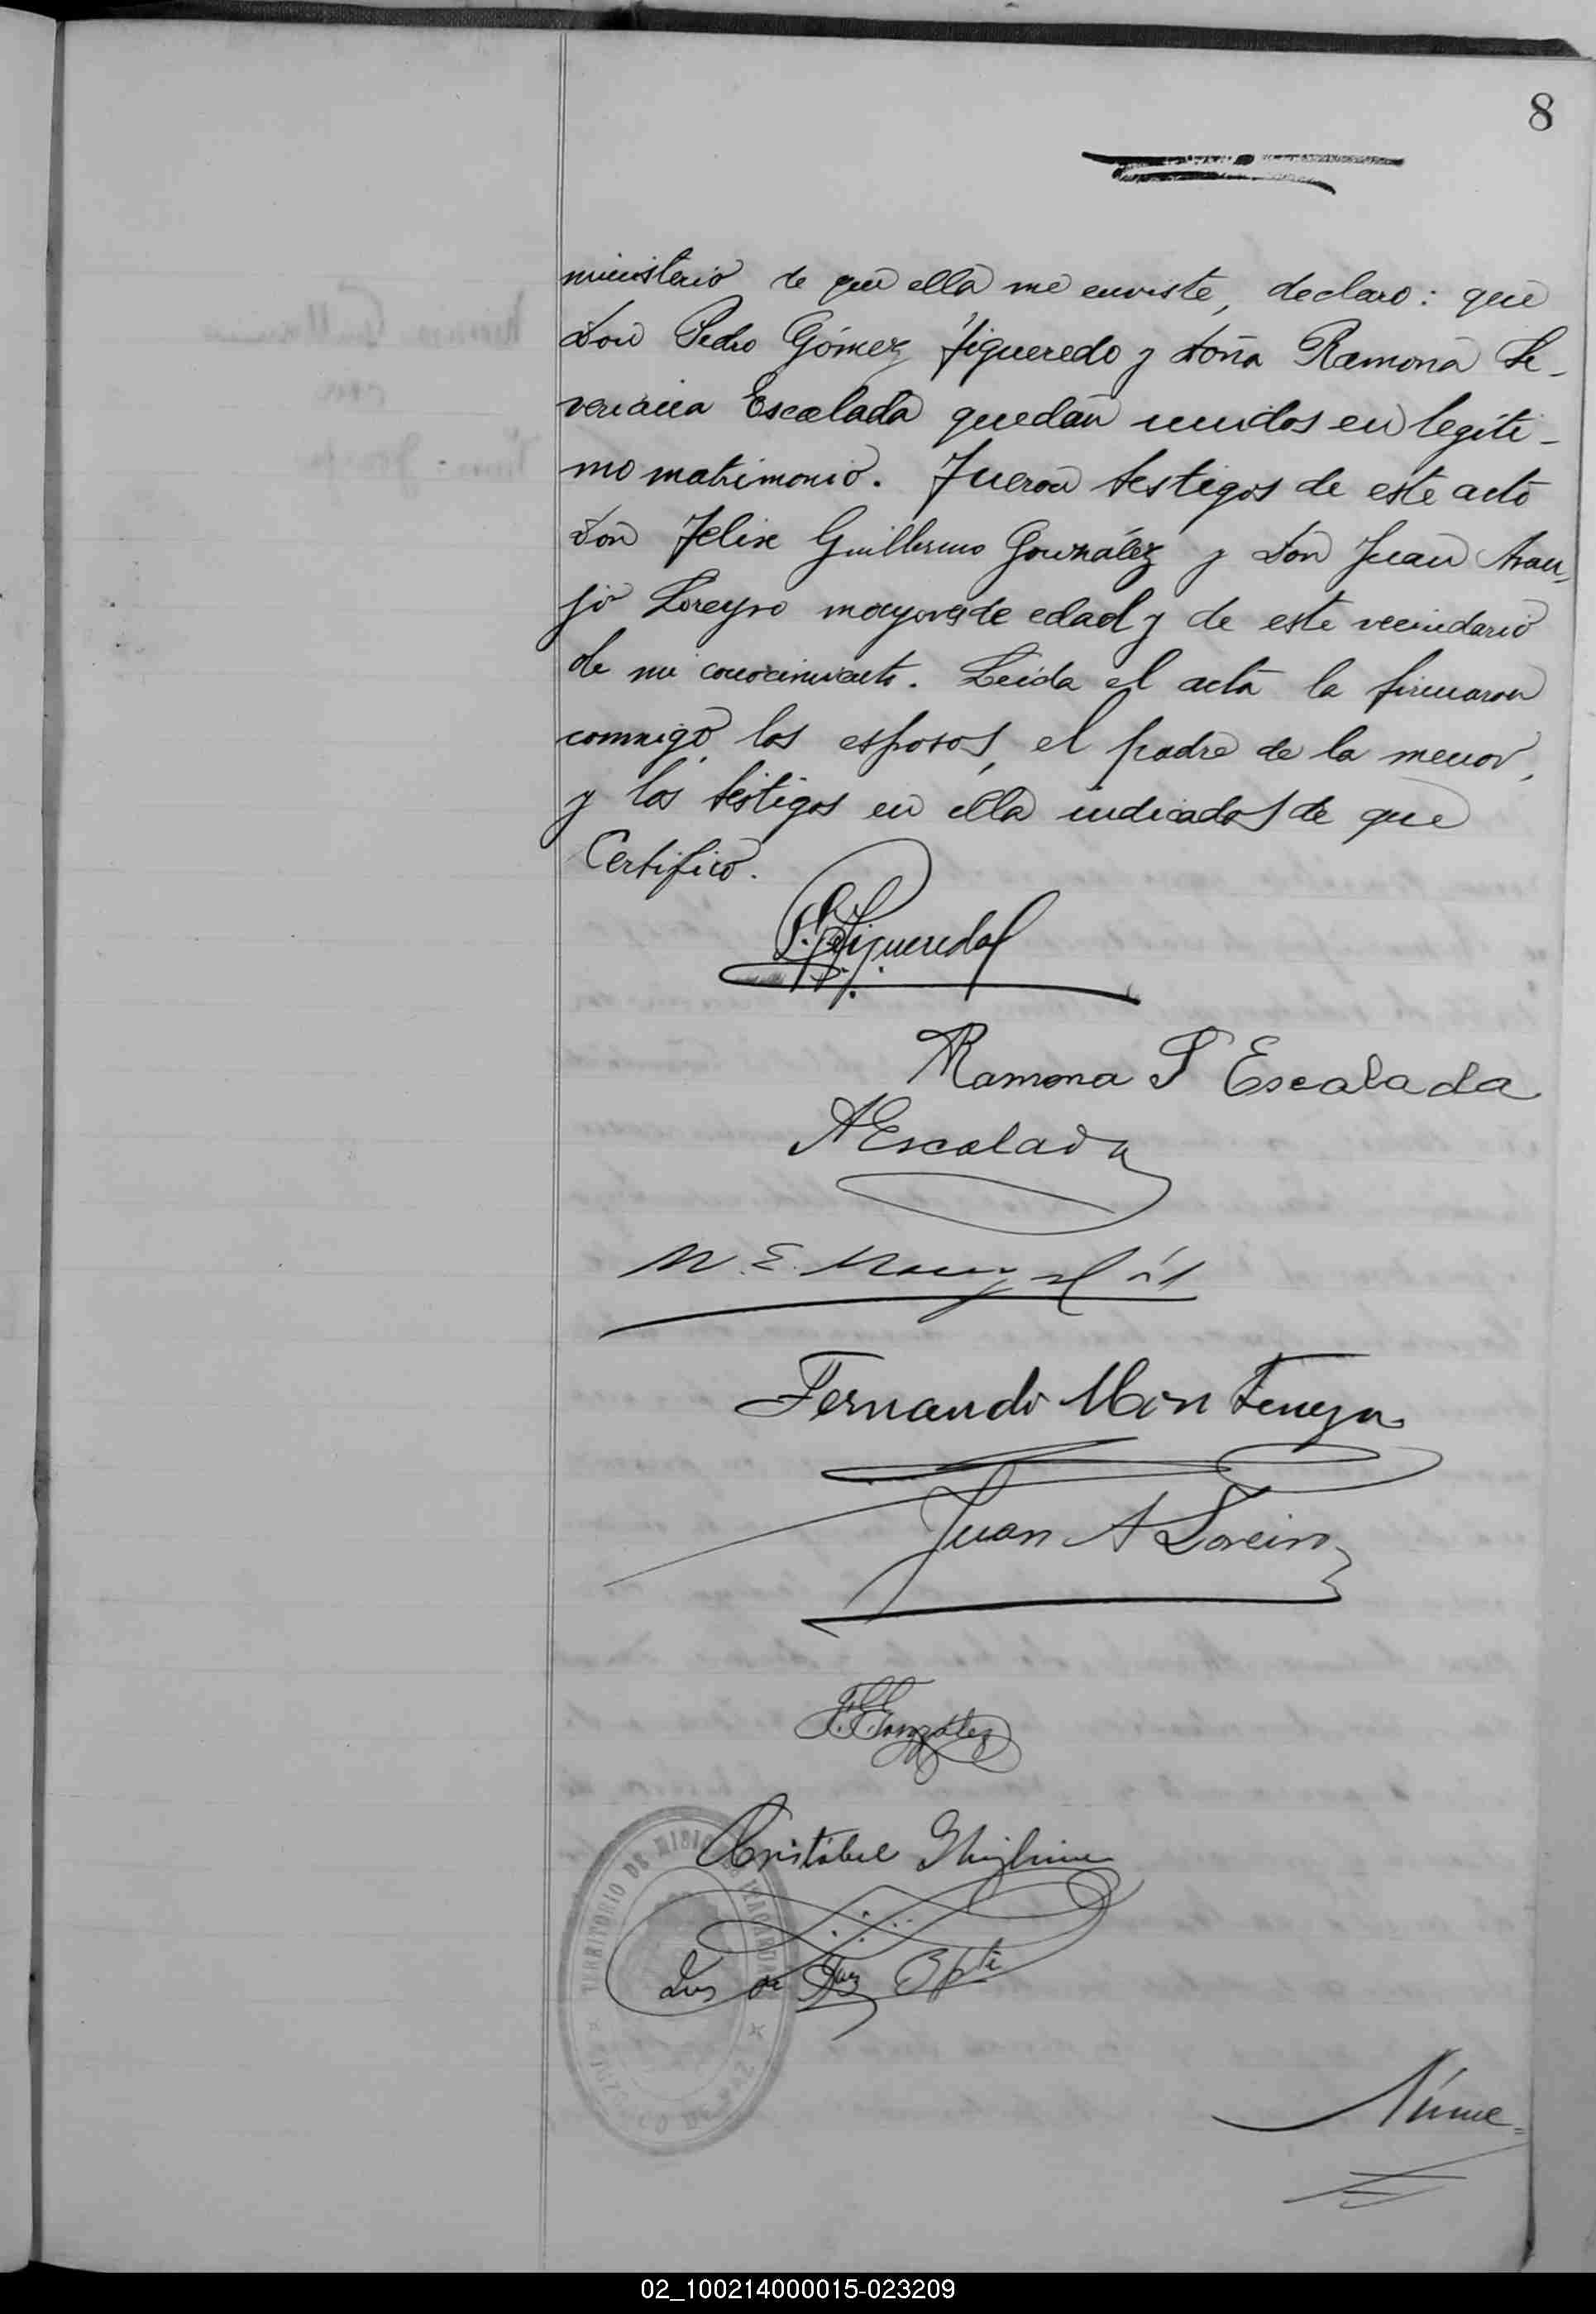 8
ministerio de que ella me enviste, declaro: que
Don Pedro Gómez Figueredo y doña Ramona Se-
veriana Escalada quedan unidos en legíti-
mo matrimonio. Fueron testigos de este acto
don Felix Guillermo Gonznález y Don Juan Arau-
jo Loreyro mayores de edad y de este vecindario
de mi conocimiento. Leida el acta la firmaron
conmigo los esposos, el padre de la menor,
y los testigos en ella indicados de que
Certifico.
P. G. Figueredo
Ramona S Escalada
A Escalada
Fernando Montenegro
Juan A Loreiro
F. G. González
Cristobal
TERRITORIO DE MISIONES
JUZGADO DE PAZ
Juez de Paz Spte
Núme=
02_100214000015-023209